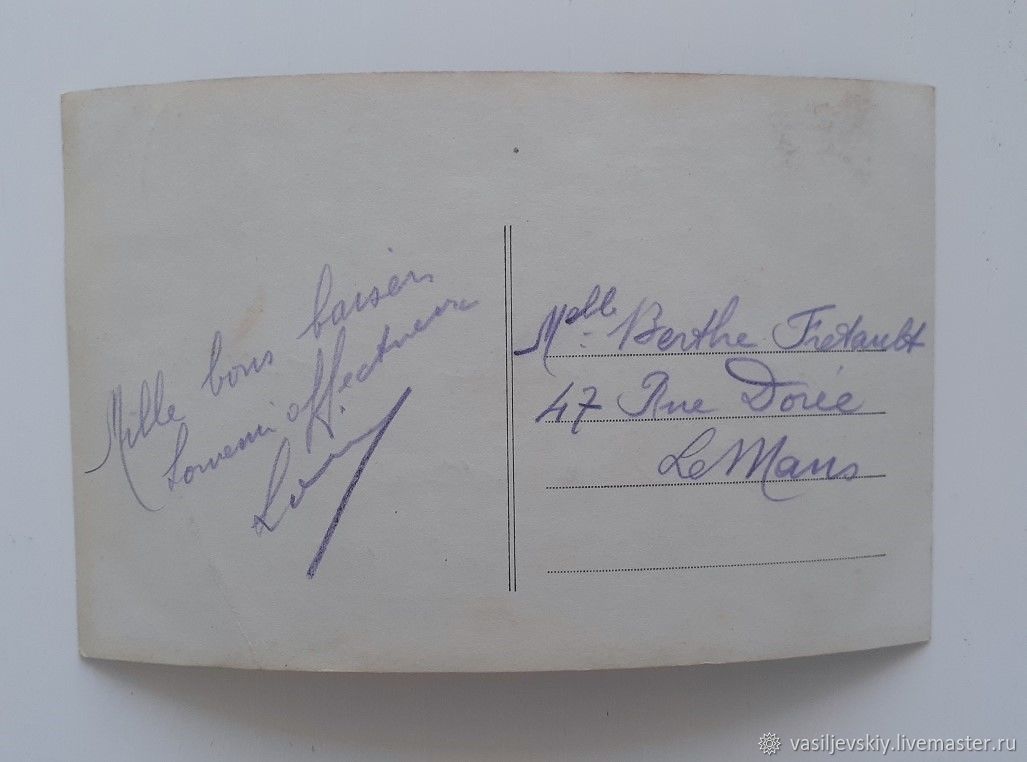 Mille bons baisers
Souvenir affectueux
Melle Berthe Fretault
47 Rue Dorée
Le Mans
vasiljevskiy.livemaster.ru